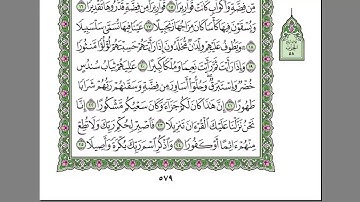 مِّن فِضَّةٍ وَأَكْوَابٍ كَانَتْ قَوَارِيرَا۠ ١٥ قَوَارِيرَا۟ مِن فِضَّةٍ قَدَّرُوهَا تَقْدِيرًا ١٦
وَيُسْقَوْنَ فِيهَا كَأْسًا كَانَ مِزَاجُهَا زَنجَبِيلًا ١٧ عَيْنًا فِيهَا تُسَمَّىٰ سَلْسَبِيلًا
١٨ وَيَطُوفُ عَلَيْهِمْ وِلْدَٰنٌ مُّخَلَّدُونَ إِذَا رَأَيْتَهُمْ حَسِبْتَهُمْ لُؤْلُؤًا مَّنثُورًا
١٩ وَإِذَا رَأَيْتَ ثَمَّ رَأَيْتَ نَعِيمًا وَمُلْكًا كَبِيرًا ٢٠ عَٰلِيَهُمْ ثِيَابُ سُندُسٍ
خُضْرٌ وَإِسْتَبْرَقٌ وَحُلُّوٓا۟ أَسَاوِرَ مِن فِضَّةٍ وَسَقَىٰهُمْ رَبُّهُمْ شَرَابًا
طَهُورًا ٢١ إِنَّ هَٰذَا كَانَ لَكُمْ جَزَآءً وَكَانَ سَعْيُكُم مَّشْكُورًا ٢٢ إِنَّا
نَحْنُ نَزَّلْنَا عَلَيْكَ ٱلْقُرْءَانَ تَنزِيلًا ٢٣ فَٱصْبِرْ لِحُكْمِ رَبِّكَ وَلَا تُطِعْ
مِنْهُمْ ءَاثِمًا أَوْ كَفُورًا ٢٤ وَٱذْكُرِ ٱسْمَ رَبِّكَ بُكْرَةً وَأَصِيلًا ٢٥
الحزب
٥٨
٥٧٩